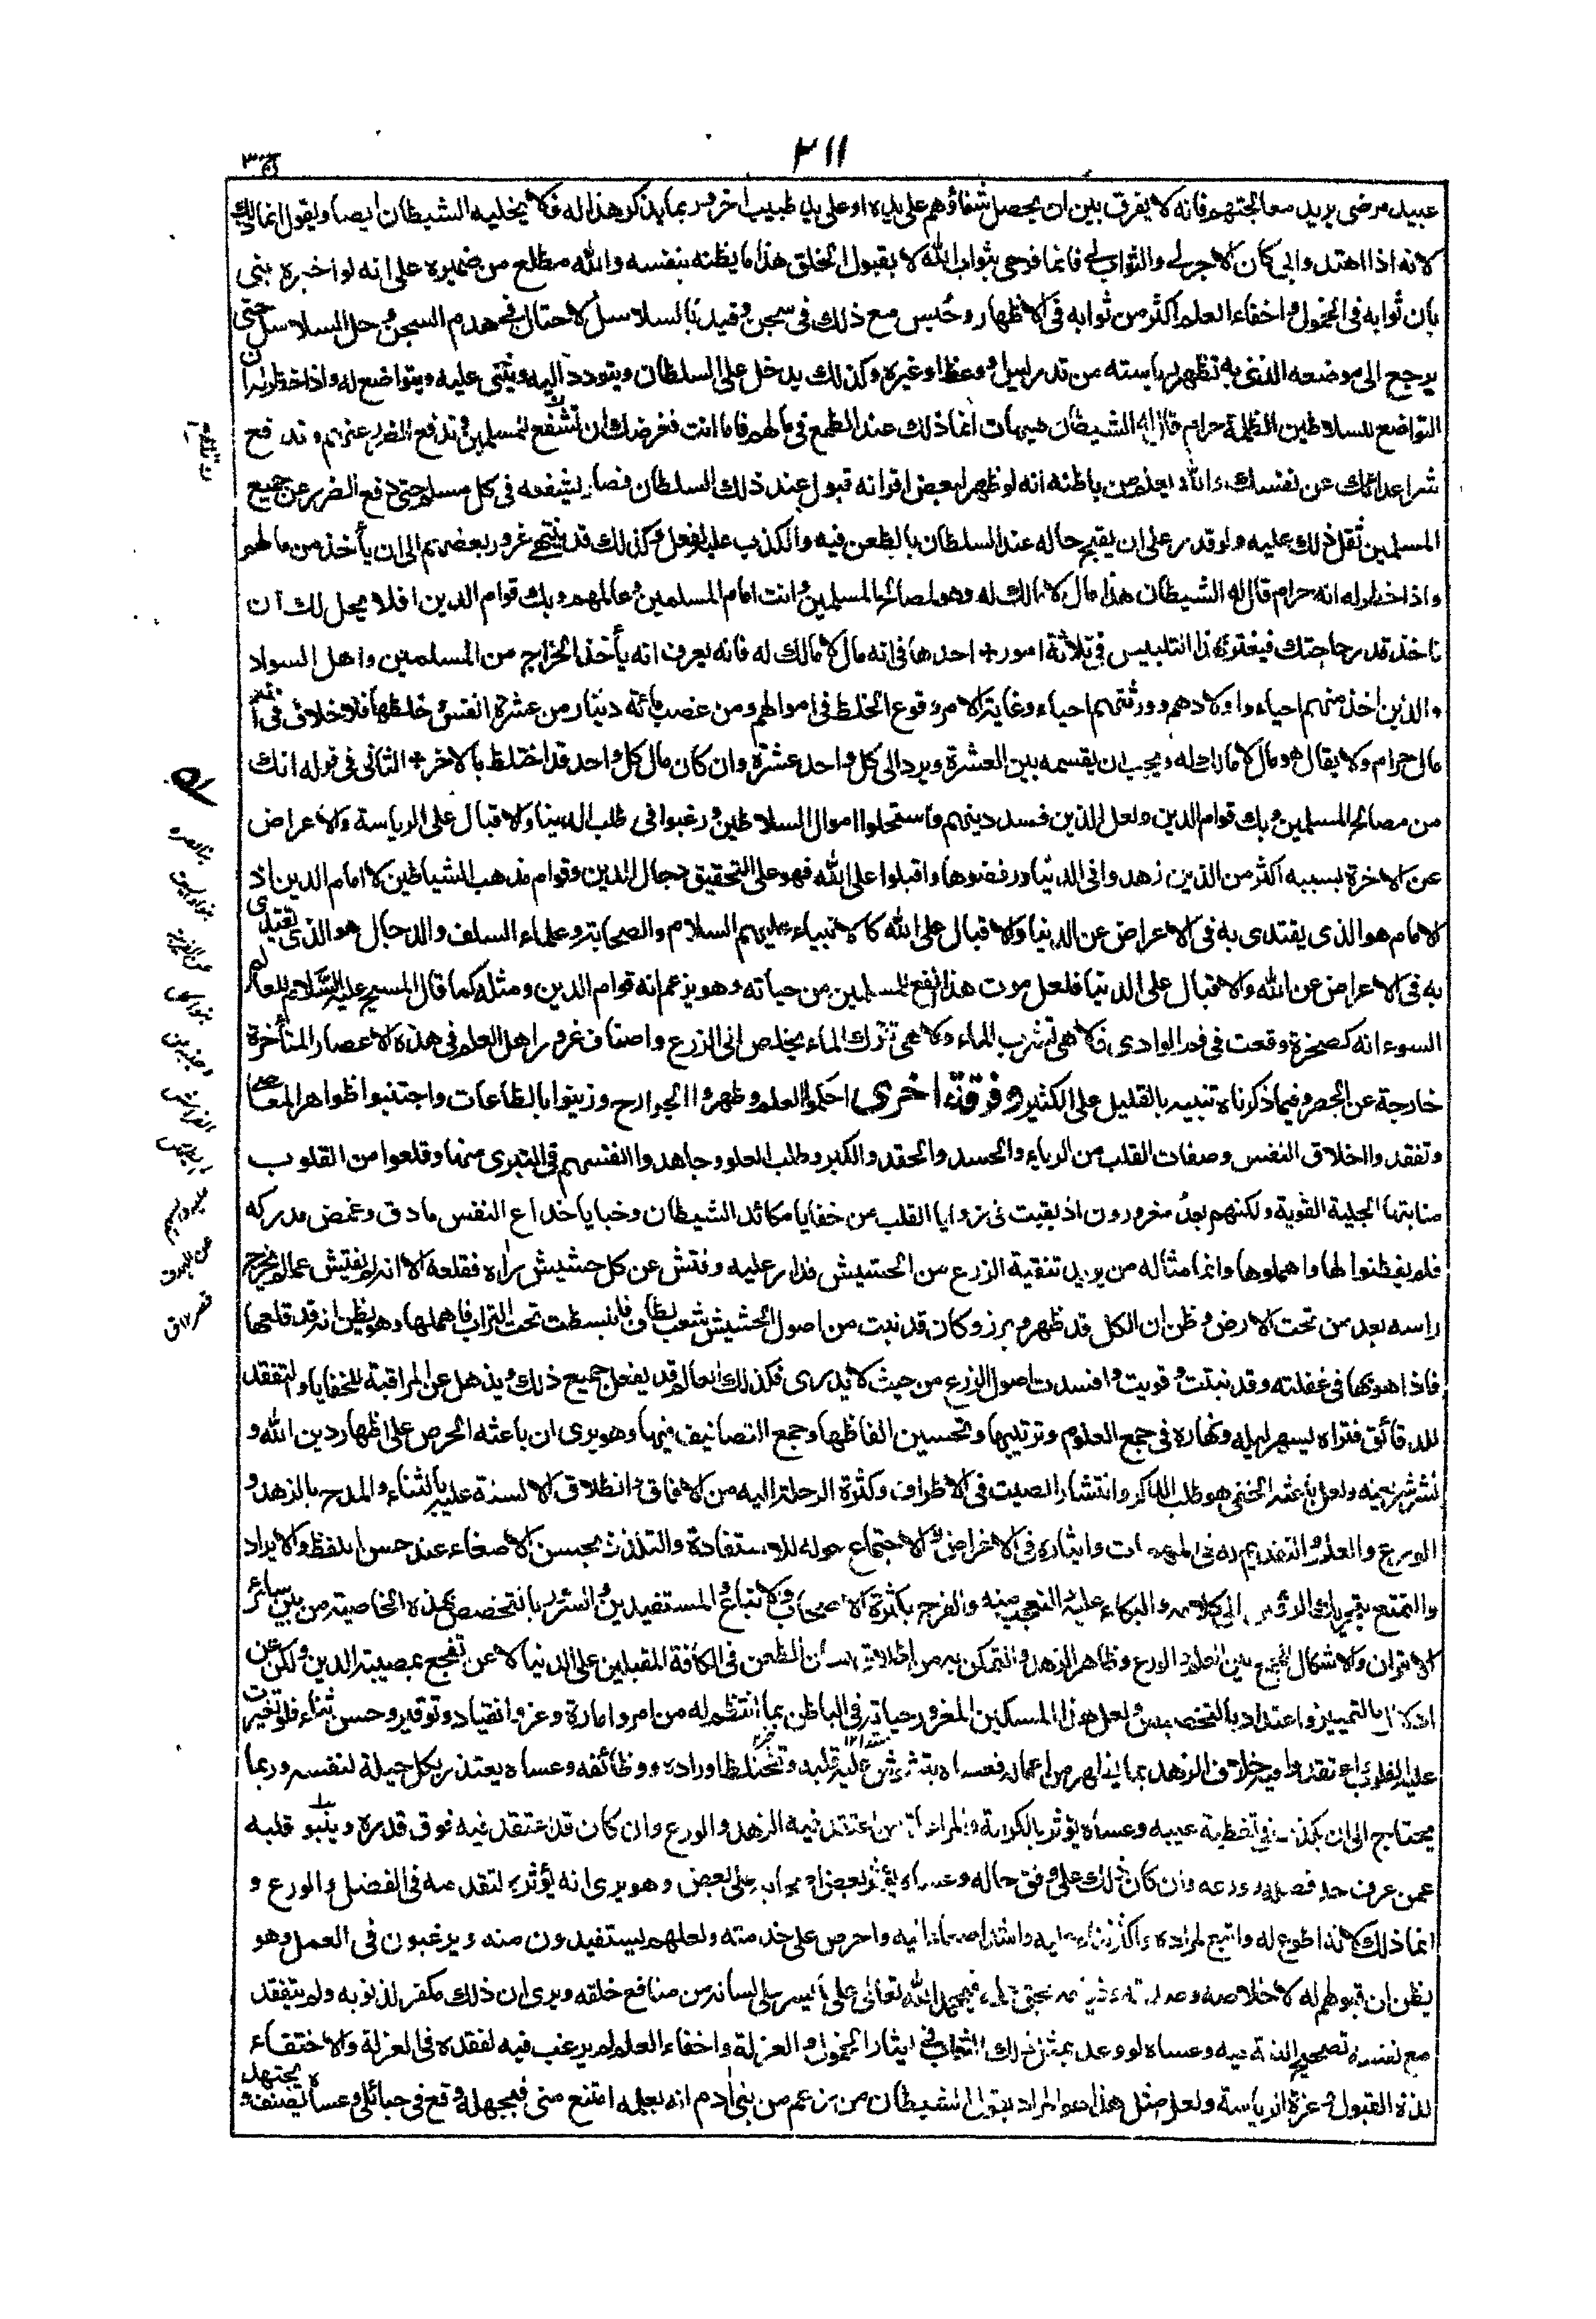 ٣١١
ج٣
عبيد مرضى يريد معالجتهم فانه لا يفرق بين ان يحصل شفاؤهم على يده او على يد طبيب اخر وربما يذكر هذا له فلا يخليه الشيطان ايضا ويقول انما لك
لانه اذا اهتدوا بي كان الاجر لي والثواب لي فانما فرحي بثواب الله لا بقبول الخلق هذا ما يظنه بنفسه والله مطلع من ضميره على انه لو اخبره نبي
بان ثوابه في الخمول واخفاء العلم اكثر من ثوابه في الاظهار وحبس مع ذلك في سجن وقيد بالسلاسل لاحتال في هدم السجن وحل السلاسل حتى
يرجع الى موضعه الذي به تظهر رياسته من تدريس او وعظ او غيره وكذلك يدخل على السلطان ويتودد اليه ويثني عليه ويتواضع له واذا خطر له ان
التواضع للسلاطين الظلمة حرام قال له الشيطان هيهات انما ذلك عند الطمع في مالهم فاما انت فغرضك ان تشفع للمسلمين وتدفع الضرر عنهم وتدفع
شر اعدائك عن نفسك والله يعلم من باطنه انه لو ظهر لبعض اقرانه قبول عند ذلك السلطان فصار يشفعه في كل مسلم حتى دفع الضرر عن جميع
المسلمين ثقل ذلك عليه ولو قدر على ان يقبح حاله عند السلطان بالطعن فيه والكذب عليه لفعل وكذلك قد ينتهي غرور بعضهم الى ان يأخذ من مالهم
واذا خطر له انه حرام قال له الشيطان هذا مال لا مالك له وهو لمصالح المسلمين وانت امام المسلمين وعالمهم وبك قوام الدين افلا يحل لك ان
تاخذ قدر حاجتك فيغتر بهذا التلبيس في ثلاثة امور + احدها في انه مال لا مالك له فانه يعرف انه يأخذ الخراج من المسلمين واهل السواد
والذين اخذ منهم احياء واولادهم وورثتهم احياء وغاية الامر وقوع الخلط في اموالهم ومن غصب مائة دينار من عشرة انفس وخلطها فلا خلاف في انه
مال حرام ولا يقال هو مال لا مالك له ويجب ان يقسمه بين العشرة ويرد الى كل واحد عشرة وان كان مال كل واحد قد اختلط بالاخر + الثاني في قوله انك
من مصالح المسلمين وبك قوام الدين ولعل الذين فسد دينهم واستحلوا اموال السلاطين ورغبوا في طلب الدنيا والاقبال على الرياسة والاعراض
عن الاخرة بسببه اكثر من الذين زهدوا في الدنيا ورفضوها واقبلوا على الله فهو على التحقيق دجال الدين وقوام مذهب الشياطين لا امام الدين اذ
الامام هو الذي يقتدى به في الاعراض عن الدنيا والاقبال على الله كالانبياء عليهم السلام والصحابة وعلماء السلف والدجال هو الذي يقتدى
به في الاعراض عن الله والاقبال على الدنيا فلعل موت هذا انفع للمسلمين من حياته وهو يزعم انه قوام الدين ومثله كما قال المسيح عليه السلام للعالم
السوء انه كصخرة وقعت في فم الوادي فلا هي تشرب الماء ولا هي تترك الماء يخلص الى الزرع واصناف غرور اهل العلم في هذه الاعصار المتأخرة
خارجة عن الحصر وفيما ذكرناه تنبيه بالقليل على الكثير وفرقة اخرى احكموا العلم وطهروا الجوارح وزينوا بالطاعات واجتنبوا ظواهر المعاصي
وتفقدوا اخلاق النفس وصفات القلب من الرياء والحسد والحقد والكبر وطلب العلو وجاهدوا انفسهم في التبري منها وقلعوا من القلوب
منابتها الجلية القوية ولكنهم بعد مغرورون اذ بقيت في زوايا القلب من خفايا مكائد الشيطان وخبايا خداع النفس ما دق وغمض مدركه
فلم يفطنوا لها واهملوها وانما مثاله من يريد تنقية الزرع من الحشيش فدار عليه وفتش عن كل حشيش راه فقلعه الا انه لم يفتش عما لم يخرج
راسه بعد من تحت الارض وظن ان الكل قد ظهر وبرز وكان قد نبت من اصول الحشيش شعب لطاف فانبسطت تحت التراب فاهملها وهو يظن انه قد قلعها
فاذا هو بها في غفلته وقد نبتت وقويت وافسدت اصول الزرع من حيث لا يدري فكذلك العالم قد يفعل جميع ذلك ويذهل عن المراقبة للخفايا والتفقد
للدقائق فتراه يسهر ليله ونهاره في جمع العلوم وترتيبها وتحسين الفاظها وجمع التصانيف فيها وهو يرى ان باعثه الحرص على اظهار دين الله و
نشر شريعته ولعل باعثه الخفي هو طلب الذكر وانتشار الصيت في الاطراف وكثرة الرحلة اليه من الافاق وانطلاق الالسنة عليه بالثناء والمدح بالزهد و
الورع والعلم والتقديم له في المهمات وايثاره في الاغراض والاجتماع حوله للاستفادة والتلذذ بحسن الاصغاء عند حسن اللفظ والايراد
والتمتع بتحريك الرؤس الى كلامه والبكاء عليه والتعجب منه والفرح بكثرة الاصحاب والاتباع والمستفيدين والسرور بالتخصص بهذه الخاصية من بين سائر
الاقران والاشكال للجمع بين العلم والورع وظاهر الزهد والتمكن به من اطلاق لسان الطعن في الكافة المقبلين على الدنيا لا عن تفجع بمصيبة الدين ولكن عن
ادلال بالتمييز واعتداد بالتخصيص ولعل هذا المسكين المغرور حياته في الباطن بما انتظم له من امر وامارة وعز وانقياد وتوقير وحسن ثناء فلو تغيرت
عليه القلوب واعتقدوا فيه خلاف الزهد بما يظهر من اعماله فعساه يتشوش عليه قلبه وتختلط اوراده ووظائفه وعساه يعتذر بكل حيلة لنفسه وربما
يحتاج الى ان يكذب في تغطية عيبه وعساه يؤثر بالكرامة والمراعاة من اعتقد فيه الزهد والورع وان كان قد اعتقد فيه فوق قدره وينبو قلبه
عمن عرف حد فضله وورعه وان كان ذلك على وفق حاله وعساه يؤثر بعض اصحابه على بعض وهو يرى انه يؤثره لتقدمه في الفضل والورع و
انما ذلك لانه اطوع له واتبع لمراده واكثر ثناء عليه واشد اصغاء اليه واحرص على خدمته ولعلهم يستفيدون منه ويرغبون في العمل وهو
يظن ان قبولهم له لاخلاصه وصدقه وقيامه بحق علمه فيحمد الله تعالى على ما يسر على لسانه من منافع خلقه ويرى ان ذلك مكفر لذنوبه ولم يتفقد
مع نفسه تصحيح النية فيه وعساه لو وعد بمثل ذلك الثواب في ايثار الخمول والعزلة واخفاء العلم لم يرغب فيه لفقده في العزلة والاختفاء
لذة القبول وعزة الرياسة ولعل مثل هذا هو المراد بقول الشيطان من زعم من بني ادم انه بعلمه امتنع مني فبجهله وقع في حبائلي وعساه يصنف ويجتهد